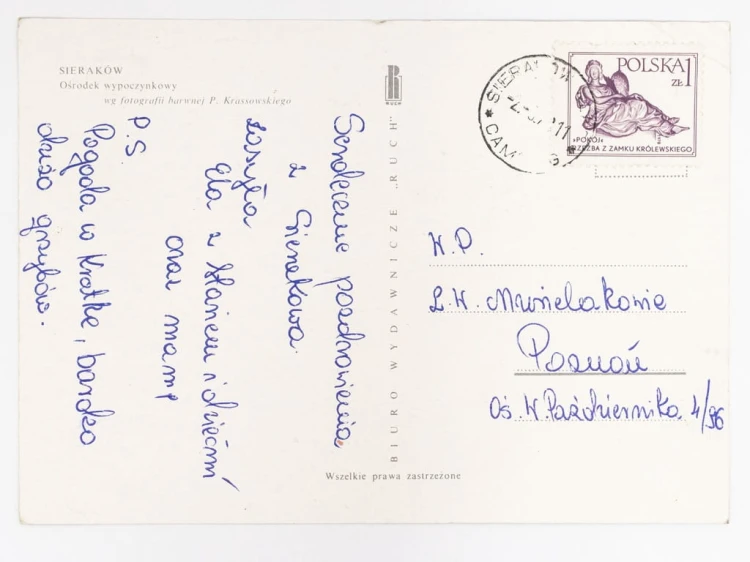 SIERAKÓW
Ośrodek wypoczynkowy
wg fotografii barwnej P. Krassowskiego
RUCH
POLSKA 1
ZŁ
«POKÓJ»
RZEŹBA Z ZAMKU KRÓLEWSKIEGO
Serdeczne pozdrowienia
z Sierakowa
zasyła
Ela z Stasiem i dziećmi
oraz mama
P.S.
Pogoda w kratkę, bardzo
dużo grzybów.
BIURO WYDAWNICZE „RUCH"
W.P.
Z.W.
Poznań
Oś. W. Październik. 4/96
Wszelkie prawa zastrzeżone